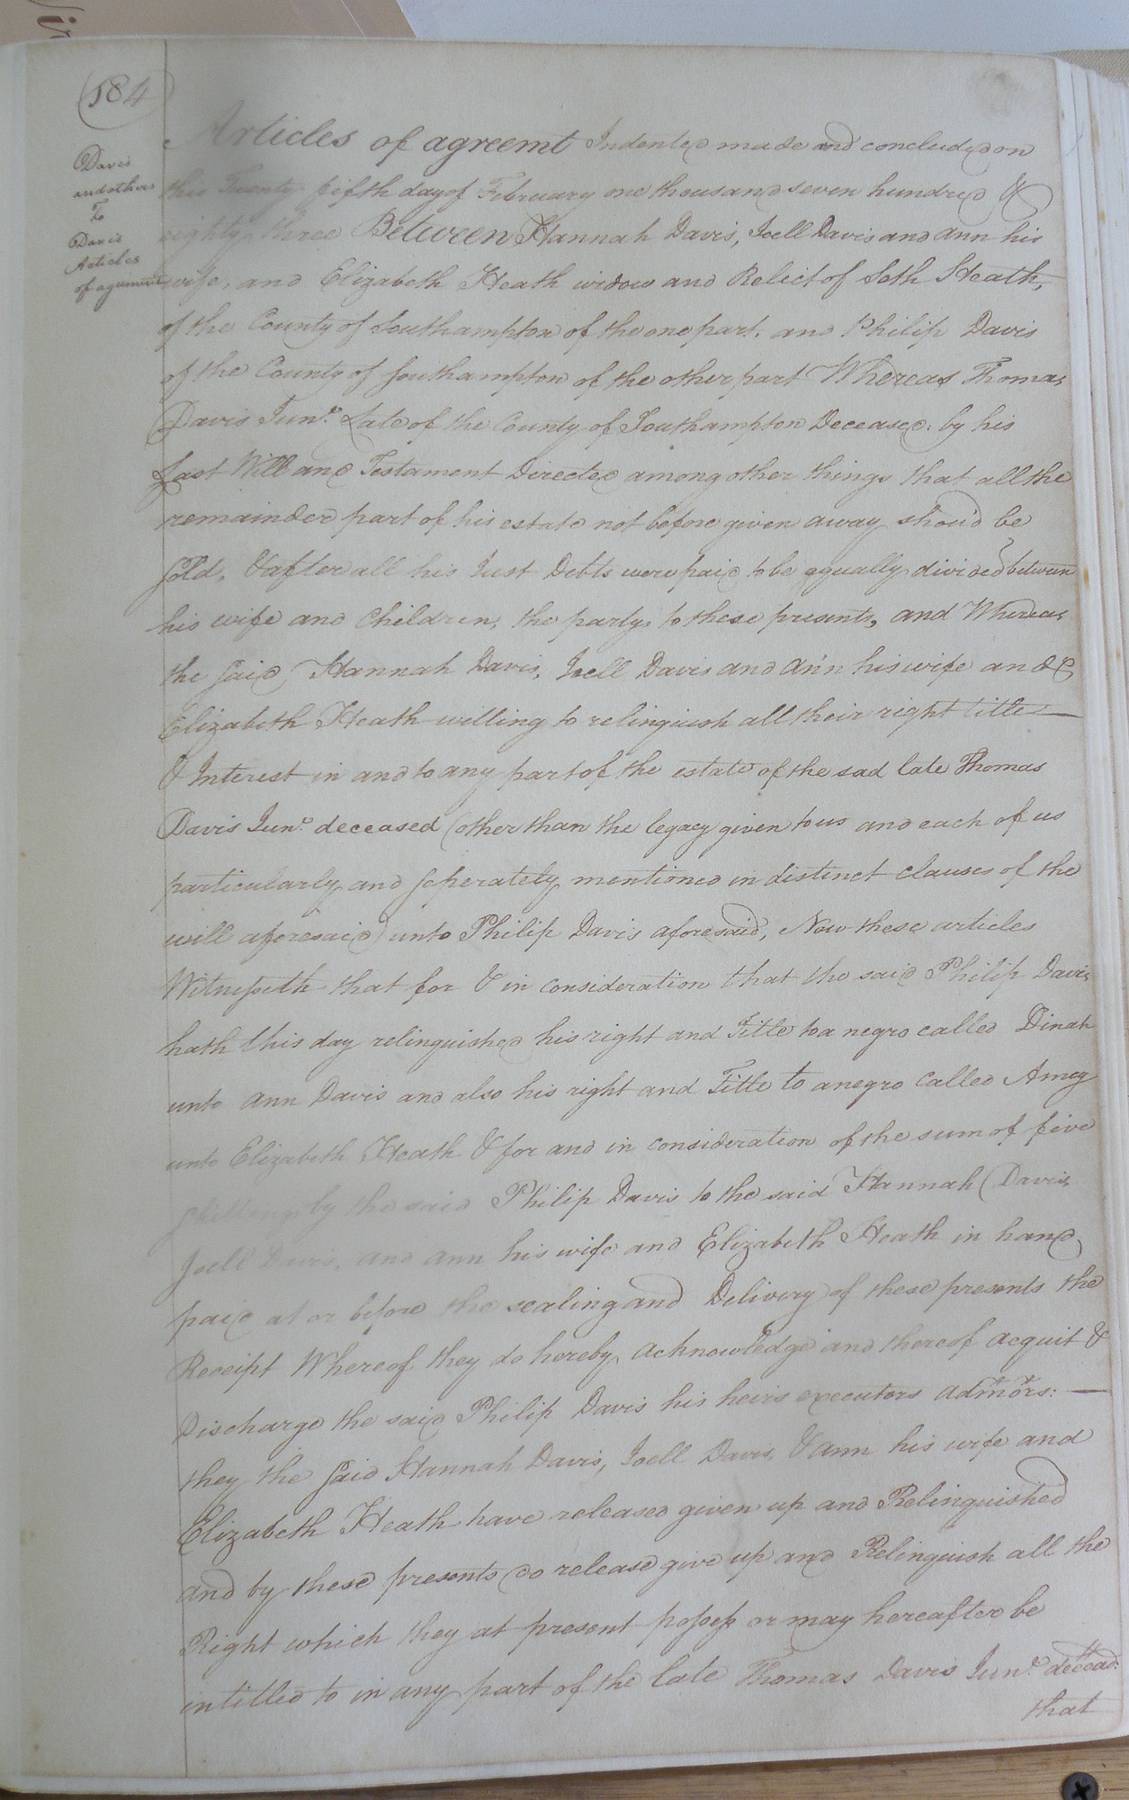 184
Davis
and others
To
Davis
Articles
of agreement
Articles of agreemt Indented made and concluded on
this Twenty fifth day of February one thousand seven hundred &
eighty three Between Hannah Davis, Joell Davis and Ann his
wife, and Elizabeth Heath widow and Relict of Seth Heath,
of the County of Southampton of the one part, and Philip Davis
of the County of Southampton of the other part Whereas Thomas
Davis Junr. Late of the County of Southampton Deceased, by his
Last Will and Testament Directed among other things that all the
remainder part of his estate not before given away shou'd be
sold, & after all his Just Debts were paid to be equally divided between
his wife and Children, the partys to these presents, and Whereas
the said Hannah Davis, Joell Davis and Ann his wife and
Elizabeth Heath willing to relinquish all their right title
& Interest in and to any part of the estate of the sad late Thomas
Davis Junr. deceased (other than the legacy given to us and each of us
particularly and seperately mentioned in distinct clauses of the
will aforesaid) unto Philip Davis aforesaid, Now these articles
Witnesseth that for & in consideration that the said Philip Davis
hath this day relinquished his right and Title to a negro called Dinah
unto Ann Davis and also his right and Title to a negro called Amey
unto Elizabeth Heath & for and in consideration of the sum of five
shillings by the said Philip Davis to the said Hannah Davis
Joell Davis, and Ann his wife and Elizabeth Heath in hand
paid at or before the sealing and Delivery of these presents the
Receipt Whereof they do hereby Acknowledge and thereof acquit &
Discharge the said Philip Davis his heirs executors admors:
they the said Hannah Davis, Joell Davis, & Ann his wife and
Elizabeth Heath have released given up and Relinquished
and by these presents do release give up and Relinquish all the
Right which they at present possess or may hereafter be
intitled to in any part of the late Thomas Davis Junr. decead.
that